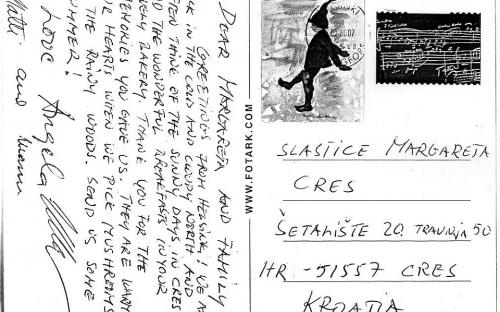 DEAR MARGARETA AND FAMILY
GREETINGS FROM HELSINKI! WE
CK IN THE COLD AND CLOUDY NORTH AND
TEN THINK OF THE SUNNY DAYS IN CRES
D THE WONDERFUL BREAKFASTS IN YOUR
VELY BAKERY. THANK YOU FOR THE
EMORIES YOU GAVE US. THEY ARE WARM
R HEARTS WHEN WE PICK MUSHROOMS
THE RAINY WOODS. SEND US SOME
UMMER!
LOVE Angela
Matti and
WWW.FOTARK.COM
2007
SLASTICE MARGARETA
CRES
ŠETALIŠTE 20. TRAVNJA 50
HR-51557 CRES
KROATIA